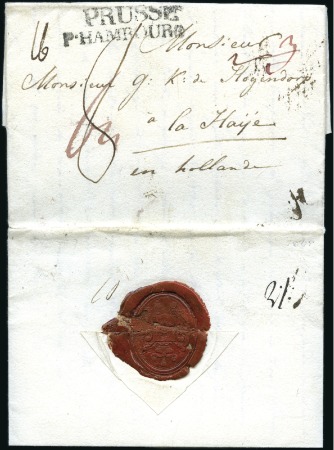 PRUSSE
Pr. HAMBOURG
Monsieur
Monsieur G: K: de Hogendorp
à la Haÿe
en hollande